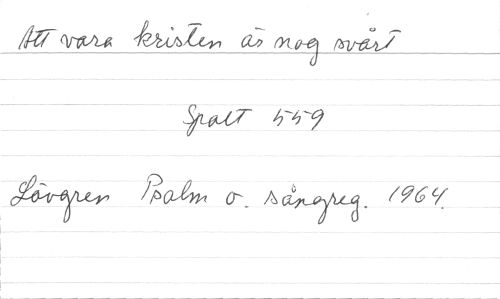 Att vara kristen är nog svårt
Spalt 559
Lövgren Psalm o. sångreg. 1964.